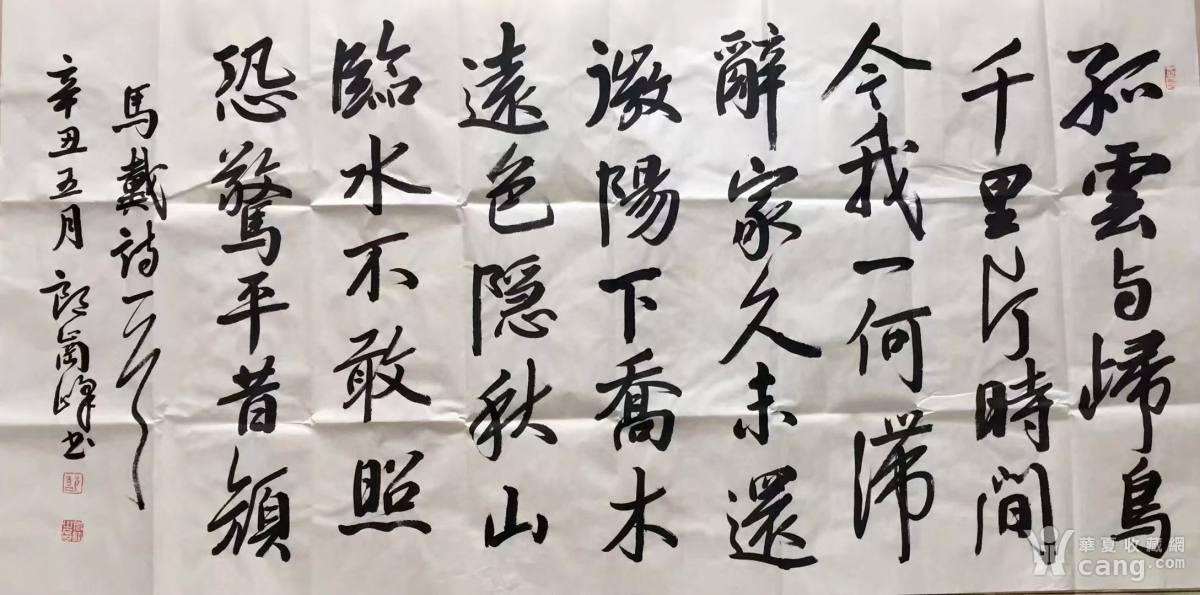 孤雲与歸鳥
千里片時間
今我一何滯
辭家久未還
微陽下喬木
遠色隱秋山
臨水不敢照
恐驚平昔顏
馬戴詩一首
辛丑五月 郎峰书
華夏收藏網
cang.com